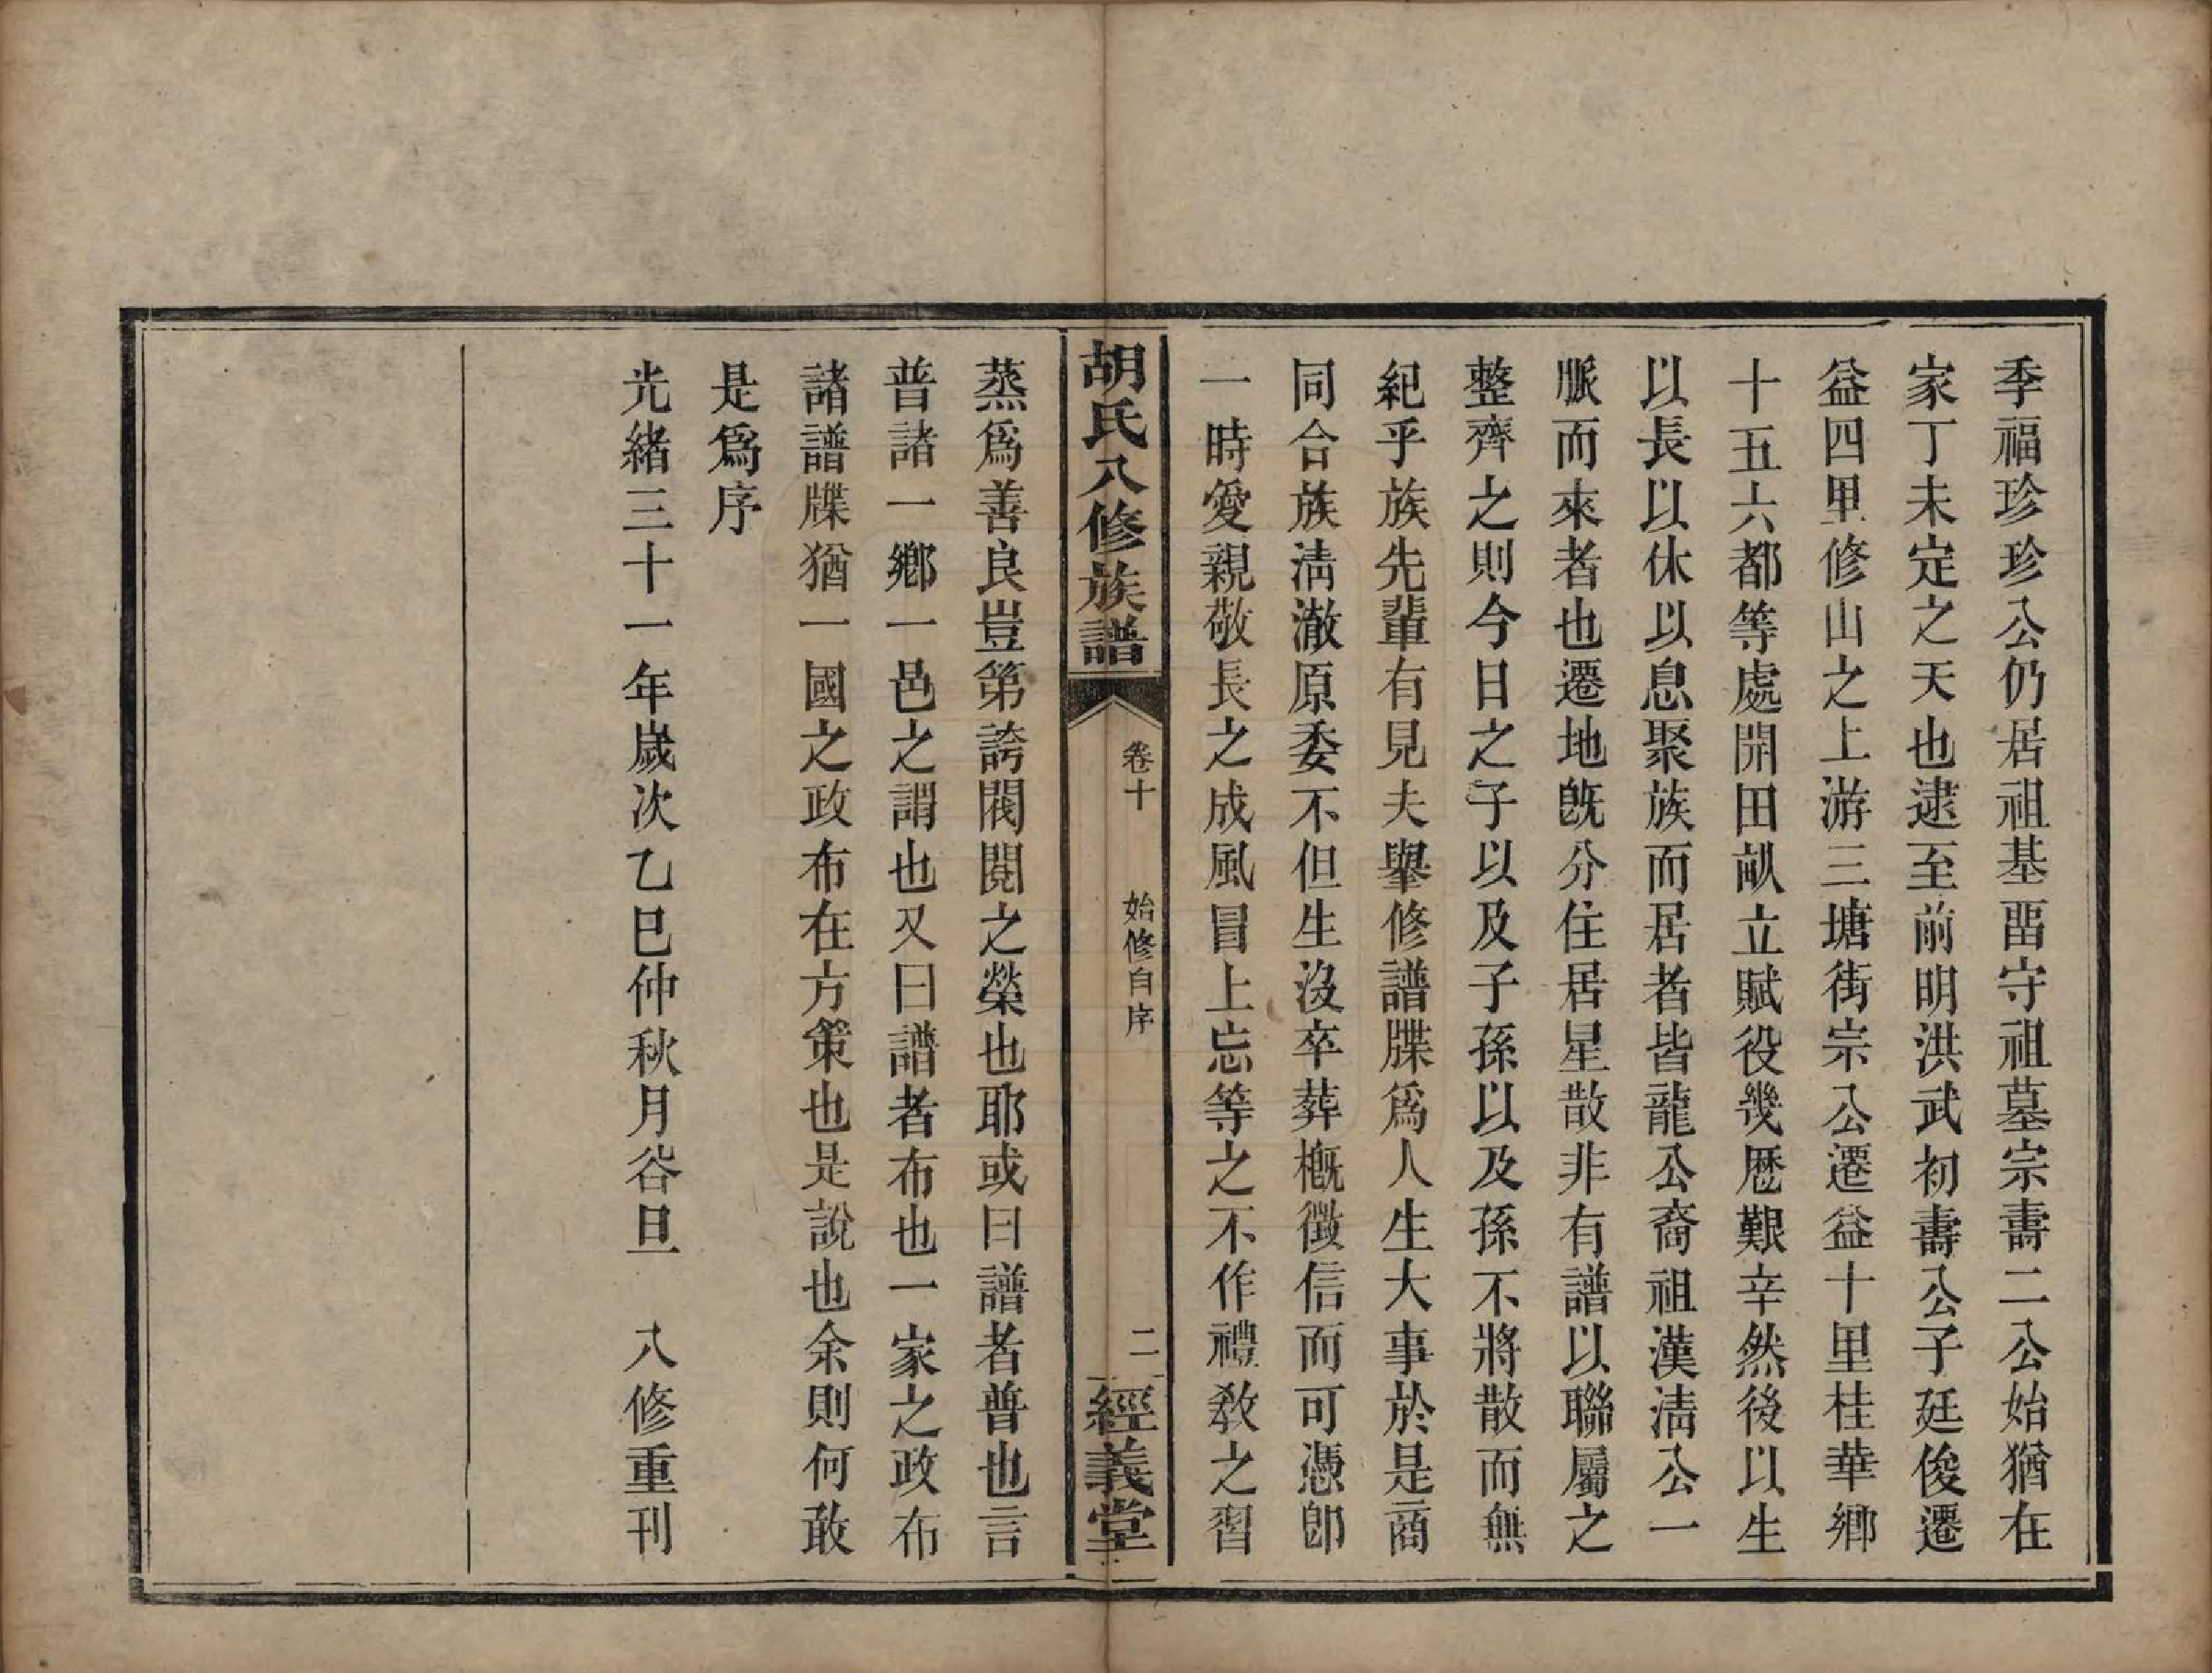 季福珍珍公仍居祖基畱守祖墓宗壽二公始猶在
家丁未定之天也逮至前明洪武初壽公子廷俊遷
益四里修山之上游三塘街宗公遷益十里桂華鄉
十五六都等處開田畝立賦役幾歷艱辛然後以生
以長以休以息聚族而居者皆龍公裔祖漢淸公一
脈而來者也遷地旣分住居星散非有譜以聯屬之
整齊之則今日之子以及子孫以及孫不將散而無
紀乎族先輩有見夫舉修譜牒爲人生大事於是商
同合族淸澈原委不但生沒卒葬槪徵信而可憑卽
一時愛親敬長之成風冒上忘等之不作禮敎之習
胡氏八修族譜
卷十
始修自序
二
經義堂
蒸爲善良豈第誇閥閱之榮也耶或曰譜者普也言
普諸一鄉一邑之謂也又曰譜者布也一家之政布
諸譜牒猶一國之政布在方策也是說也余則何敢
是爲序
光緒三十一年歲次乙巳仲秋月谷旦 八修重刊